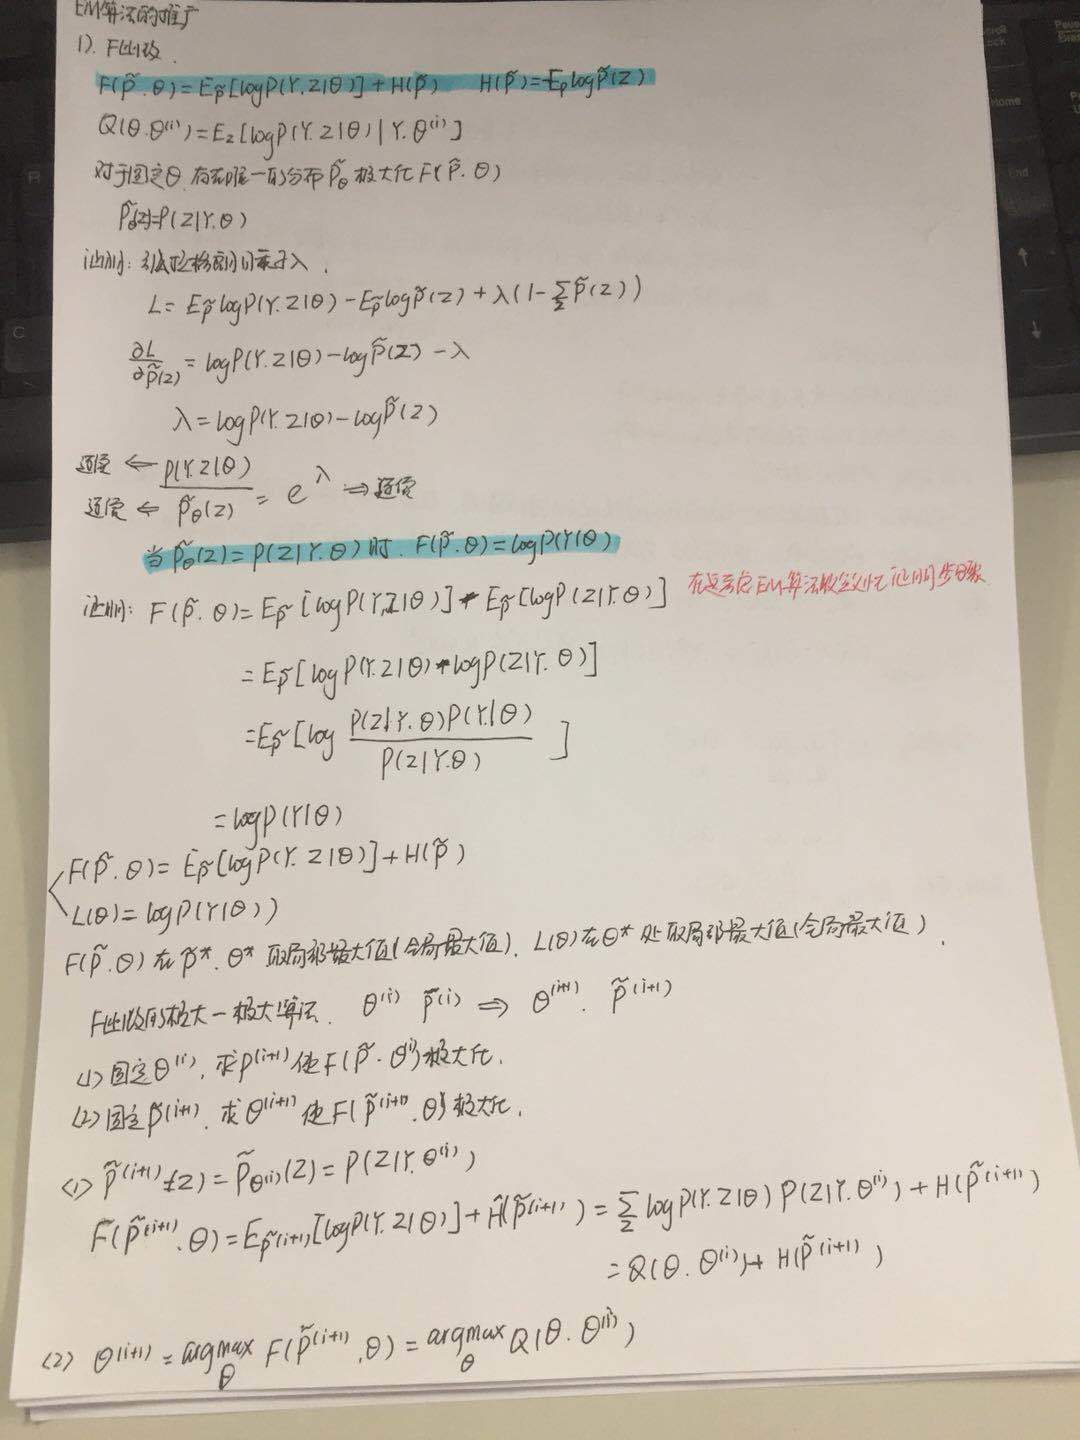 EM算法的推广
1). F函数.
F(P̃.θ)=E_P̃[logP(Y,Z|θ)]+H(P̃) H(P̃)=-E_P̃logP̃(Z)
Q(θ.θ⁽ⁱ⁾)=E_Z[logP(Y.Z|θ)|Y.θ⁽ⁱ⁾]
对于固定θ.存在唯一的分布P̃_θ极大化F(P̃.θ)
P̃_θ(Z)=P(Z|Y.θ)
证明: 引入拉格朗日乘子λ.
L=E_P̃logP(Y.Z|θ)-E_P̃logP̃(Z)+λ(1-∑_Z P̃(Z))
∂L/∂P̃(Z)=logP(Y.Z|θ)-logP̃(Z)-λ
λ=logP(Y.Z|θ)-logP̃(Z)
连续 ⇐ P(Y.Z|θ)/P̃_θ(Z) = e^λ ⇒ 连续
连续 ⇐
当P̃_θ(Z)=P(Z|Y.θ)时. F(P̃.θ)=logP(Y|θ)
证明: F(P̃.θ)=E_P̃[logP(Y,Z|θ)]-E_P̃[logP(Z|Y.θ)] EM算法收敛性证明步骤
=E_P̃[logP(Y.Z|θ)-logP(Z|Y.θ)]
=E_P̃[log P(Z|Y.θ)P(Y|θ)/P(Z|Y.θ)]
=logP(Y|θ)
F(P̃.θ)=E_P̃[logP(Y.Z|θ)]+H(P̃)
L(θ)=logP(Y|θ))
F(P̃.θ)在P̃*.θ*取局部最大值(全局最大值). L(θ)在θ*处取局部最大值(全局最大值).
F函数的极大-极大算法. θ⁽ⁱ⁾ P̃⁽ⁱ⁾ ⇒ θ⁽ⁱ⁺¹⁾. P̃⁽ⁱ⁺¹⁾
<1>固定θ⁽ⁱ⁾.求P̃⁽ⁱ⁺¹⁾使F(P̃.θ⁽ⁱ⁾)极大化.
<2>固定P̃⁽ⁱ⁺¹⁾.求θ⁽ⁱ⁺¹⁾使F(P̃⁽ⁱ⁺¹⁾.θ)极大化.
<1> P̃⁽ⁱ⁺¹⁾(Z)=P̃_θ⁽ⁱ⁾(Z)=P(Z|Y.θ⁽ⁱ⁾)
F(P̃⁽ⁱ⁺¹⁾.θ)=E_P̃⁽ⁱ⁺¹⁾[logP(Y.Z|θ)]+H(P̃⁽ⁱ⁺¹⁾)=∑_Z logP(Y.Z|θ)P(Z|Y.θ⁽ⁱ⁾)+H(P̃⁽ⁱ⁺¹⁾)
=Q(θ.θ⁽ⁱ⁾)+H(P̃⁽ⁱ⁺¹⁾)
<2> θ⁽ⁱ⁺¹⁾=argmax_θ F(P̃⁽ⁱ⁺¹⁾.θ)=argmax_θ Q(θ.θ⁽ⁱ⁾)